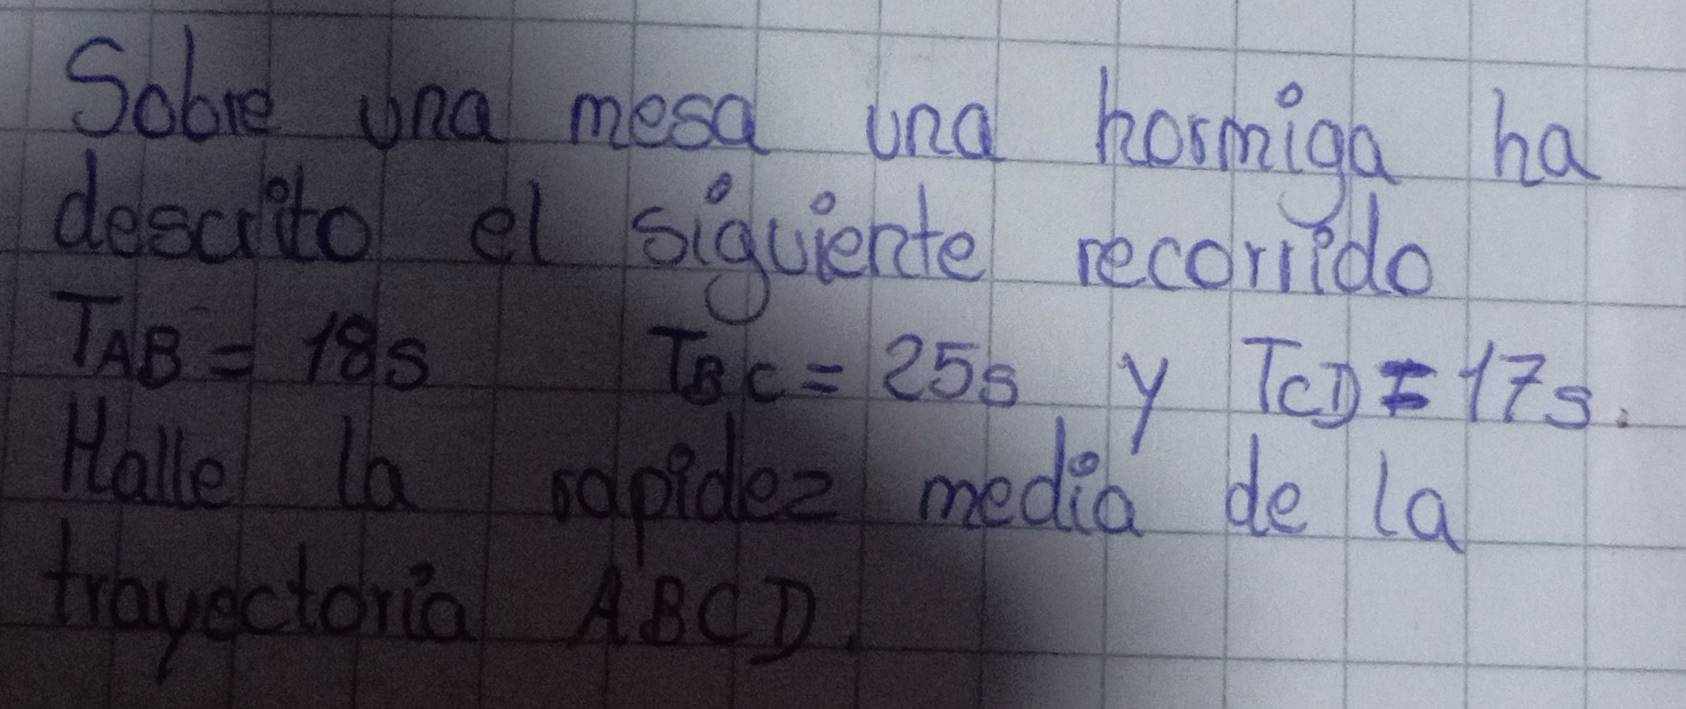 Sobre una mesa una hormiga ha
descrito el siguiente recorrido
TAB = 18s TBC = 25s y TCD = 17s.
Halle la rapidez media de la
trayectoria ABCD.